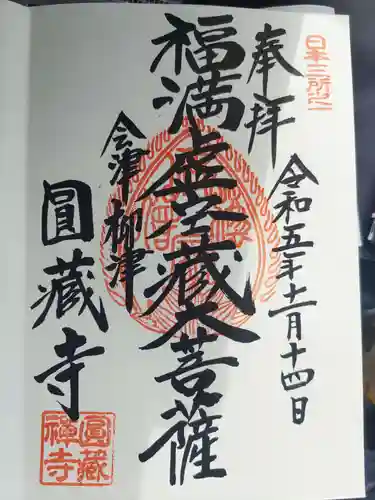 日本三所之一
奉拝
令和五年十一月十四日
福満虚空蔵大菩薩
会津柳津
圓藏寺
圓藏禅寺